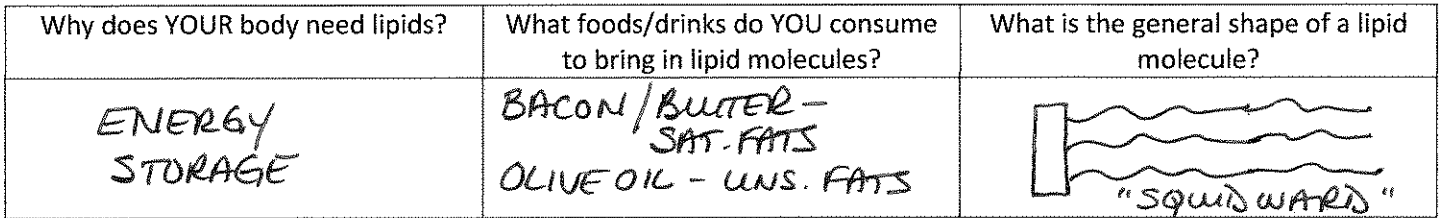 Why does YOUR body need lipids?
What foods/drinks do YOU consume
to bring in lipid molecules?
What is the general shape of a lipid
molecule?
ENERGY
STORAGE
BACON/BUTTER -
SAT. FATS
OLIVE OIL - UNS. FATS
"SQUIDWARD"